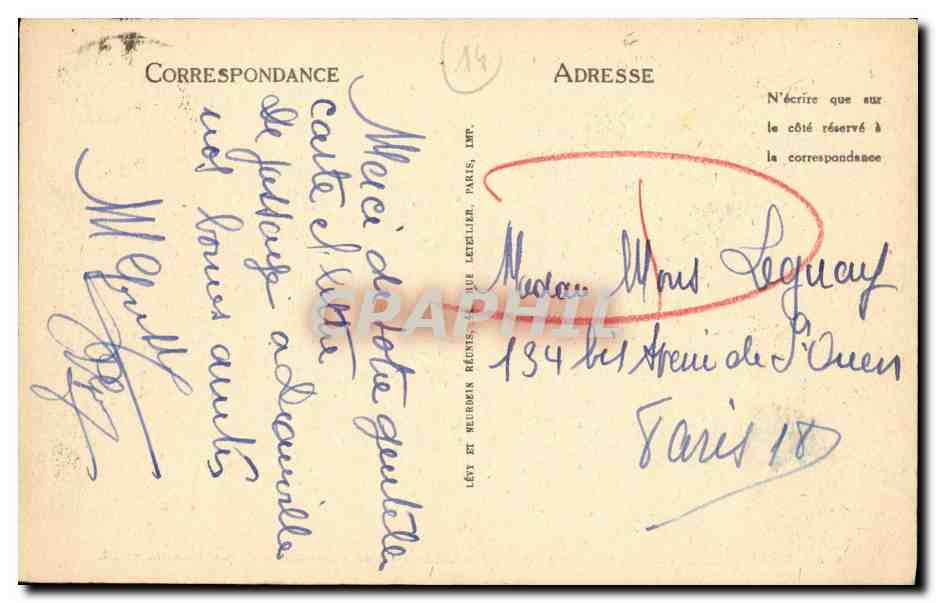 CORRESPONDANCE
Merci de votre gentille
carte et lettre
de passage a Deauville
nos bonnes amitiés
14
LÉVY ET NEURDEIN RÉUNIS, 44, RUE LETELLIER, PARIS, IMP.
ADRESSE
N'écrire que sur
le côté réservé à
la correspondance
Madam Mons Leguay
134 bis Avenue de St Ouen
Paris 18
DELCAMPE